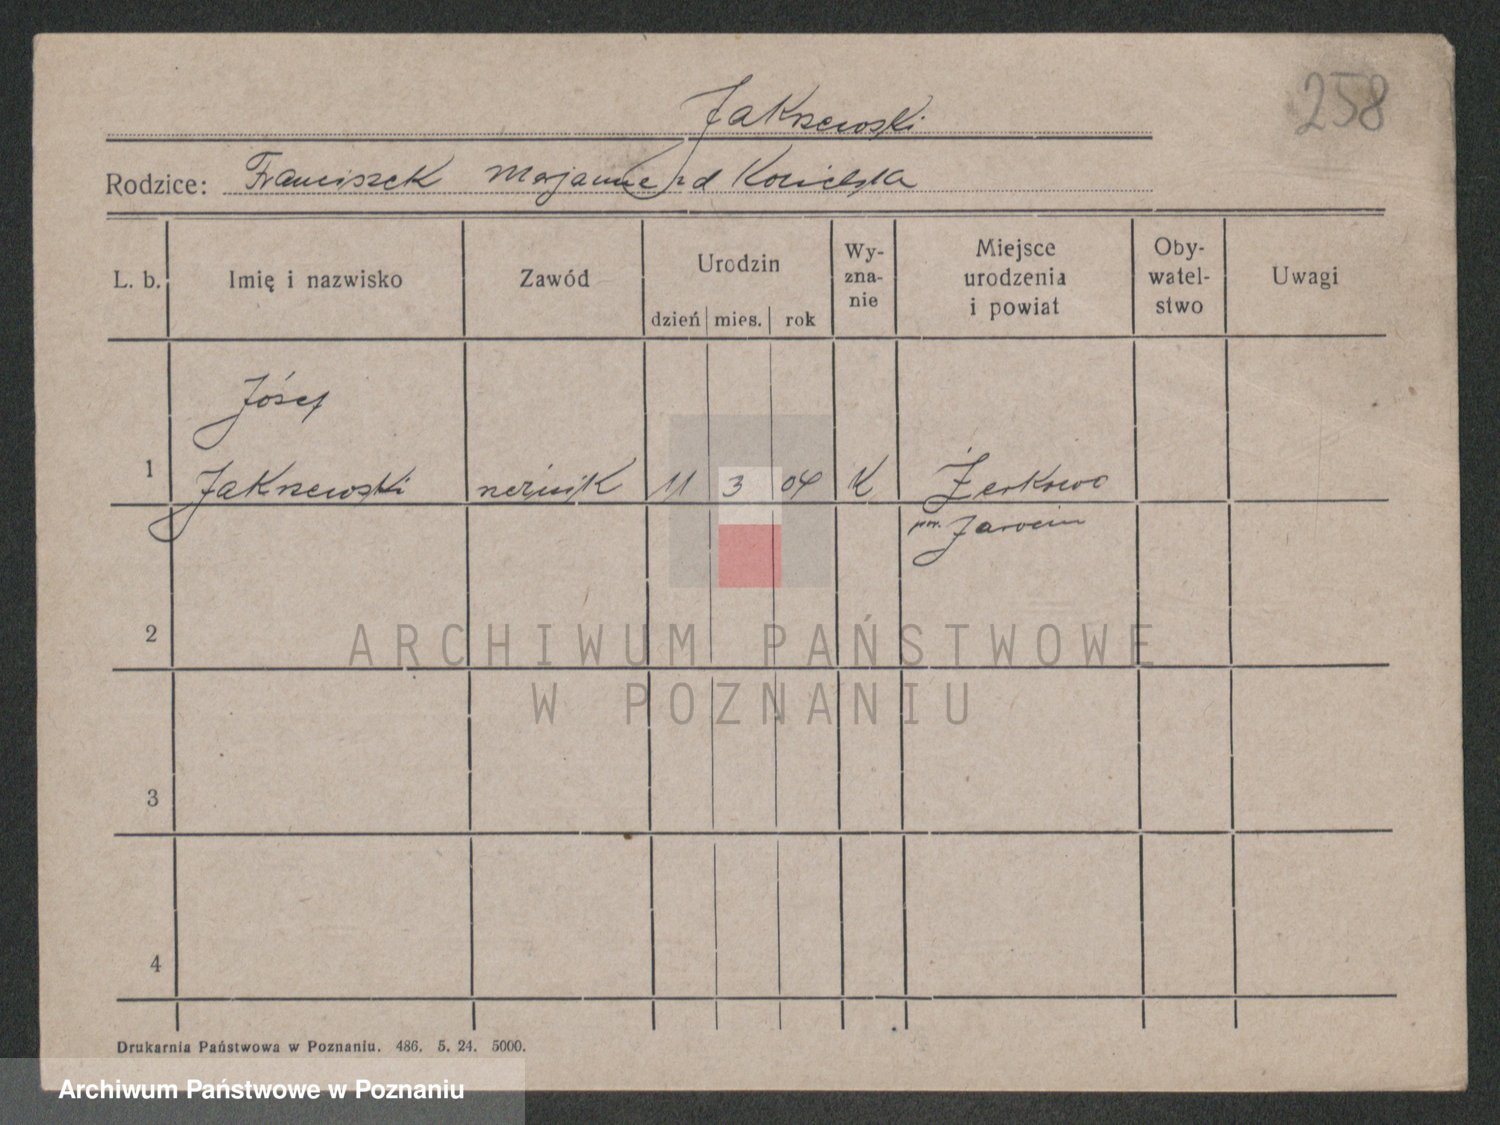 258
Jakszewski
Rodzice: Franciszek Marjanne zd
L. b. Imię i nazwisko Zawód Urodzin dzień mies. rok Wy-zna-nie Miejsce urodzenia i powiat Oby-watel-stwo Uwagi
Józef
1 Jakszewski rzeźnik 11 3 04 K Żerkowo
pow. Jarocin
2
ARCHIWUM PAŃSTWOWE
W POZNANIU
3
4
Drukarnia Państwowa w Poznaniu. 486. 5. 24. 5000.
Archiwum Państwowe w Poznaniu